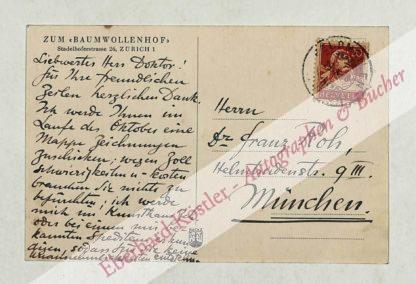 ZUM «BAUMWOLLENHOF»
Stadelhoferstrasse 26, ZÜRICH 1
Liebwertes Herr Doktor!
für Ihre freundlichen
Zeilen herzlichen Dank.
Ich werde Ihnen im
Laufe des Oktober eine
Mappe Zeichnungen
zuschicken, wegen Zoll
schwierigkeiten u-kosten
brauchen Sie nichts zu
befürchten; ich werde
mich mit Kunsthaus
oder bei einem mir be
kannten Spediteur erkun
digen, sodass für Sie keine
entstehen.
Herrn
Dr Franz Roh,
9 III.
München
Eberhard Köstler - Autographen & Bücher